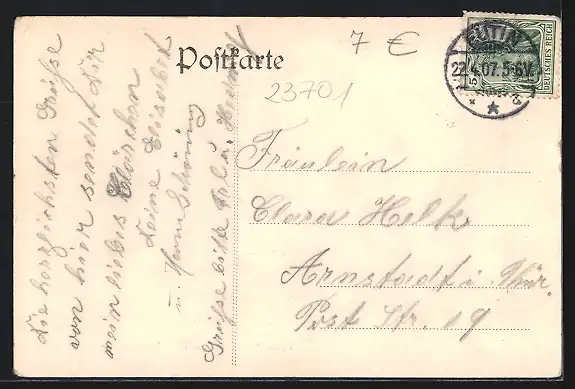 Postkarte
7 €
23701
EUTIN
22.4.07. 5-6V.
DEUTSCHES REICH
Die herzlichsten Grüße
von hier sendet Dir
mein liebes Clärchen
Deine Elisabet
u. Herm Schöning
Grüße bitte
Fräulein
Clara Helk
Arnstadt i Thür.
Post Str. 19